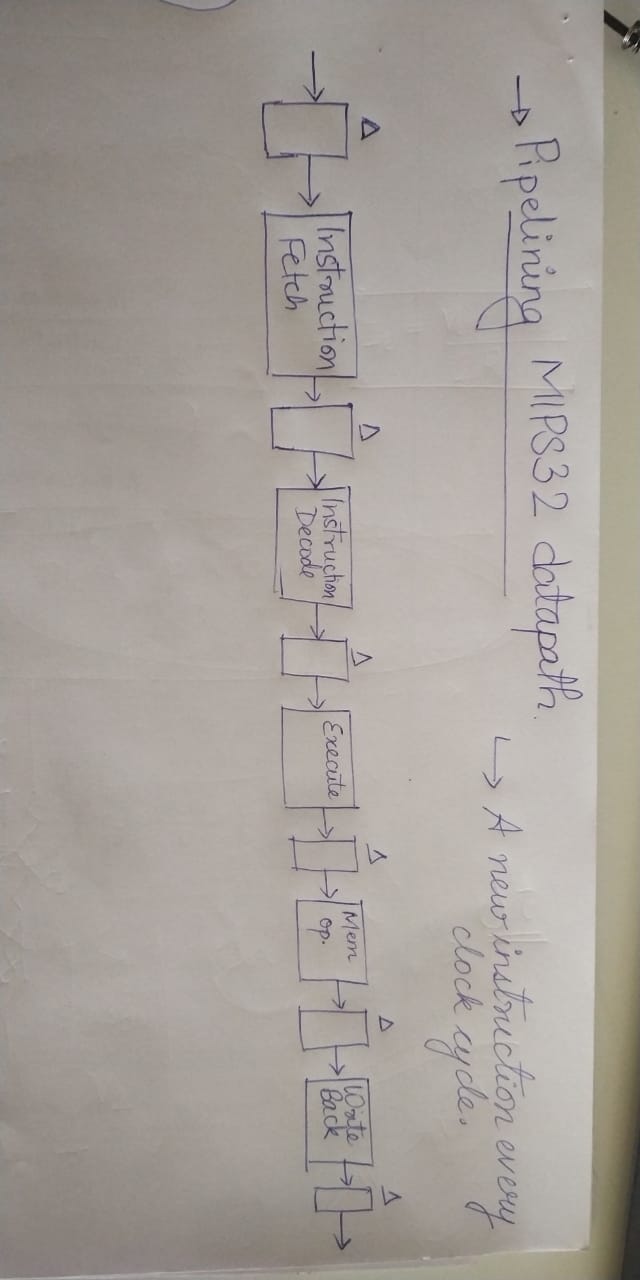 → Pipelining MIPS32 datapath.
↳ A new instruction every
clock cycle.
Δ Δ Δ Δ Δ Δ
Instruction
Fetch
Instruction
Decode
Execute
Mem
op.
Write
Back